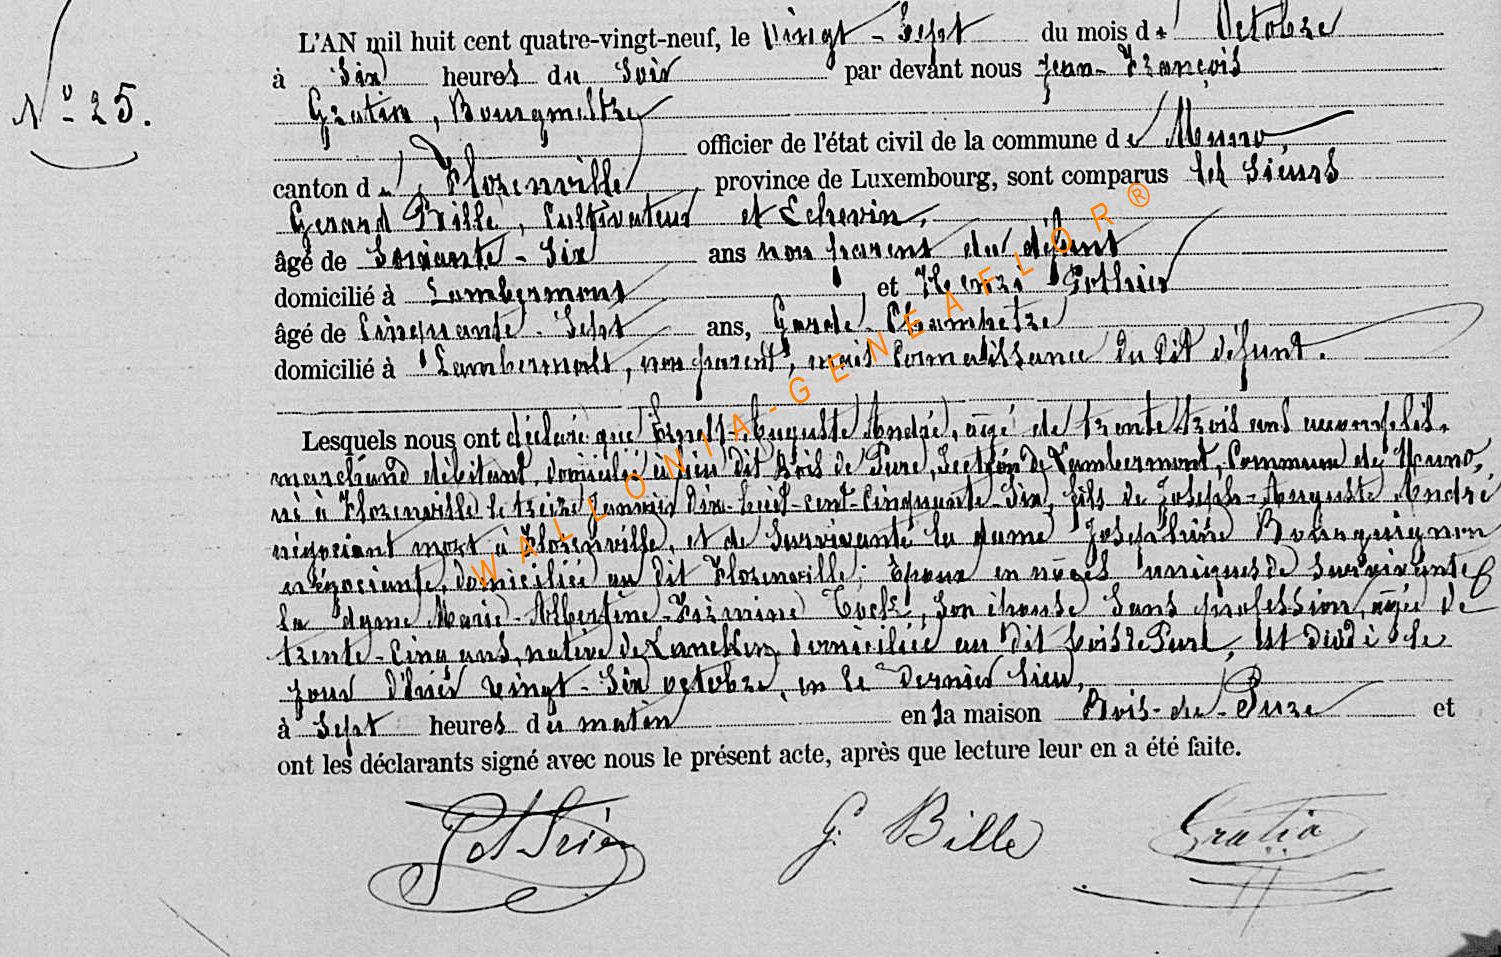 L'AN mil huit cent quatre-vingt-neuf, le Vingt-Sept du mois d' Octobre
à Six heures du Soir par devant nous Jean-François
N° 25.
Gratia, Bourgmestre
officier de l'état civil de la commune de Muno,
canton de Florenville province de Luxembourg, sont comparus les Sieurs
Gerard Bille, Cultivateur et Echevin,
âgé de Soixante-Six ans non parent du défunt
domicilié à Lambermont et Henri Pothier
âgé de Cinquante-Sept ans, Garde-Champetre
domicilié à Lambermont, non parent, mais connaissance du dit défunt.
Lesquels nous ont déclaré que Ernest-Auguste André, agé de trente trois ans accomplis,
marchand débitant, domicilié à lieu dit Bois de Pure, Section de Lambermont, Commune de Muno,
né à Florenville le treize Janvier Dix-huit-cent-Cinquante-Six, fils de Joseph-Auguste André
négociant mort à Florenville, et de Survivante la dame Joséphine Bourguignon
négociante, domiciliée au dit Florenville; Epoux en noces uniques de Survivante
la dame Marie-Albertine-Firmine son épouse Sans profession, agée de
trente-Cinq ans, native de domiciliée au dit Bois de Pure, est décédé le
jour d'hier vingt-Six octobre, en le dernier lieu,
à Sept heures du matin en la maison Bois-de-Pure et
ont les déclarants signé avec nous le présent acte, après que lecture leur en a été faite.
Pothier G. Bille Gratia
WALLONIA-GENEAFLOR ®